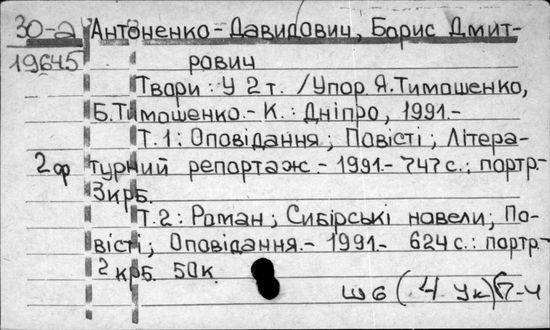 30-2 Антоненко-Давидович, Борис Дмит-
19645 рович
Твори: У 2 т. /Упор. Я.Тимошенко,
Б.Тимошенко.- К.: Дніпро, 1991.-
Т.1: Оповідання; Повісті; Літера-
2 ф турний репортаж.- 1991.- 747 с.: портр.-
3крб.
Т.2: Роман; Сибірські новели; По-
вісті; Оповідання.- 1991.- 624 с.: портр.-
2 крб. 50к.
ш6 (4 Ук)6-4